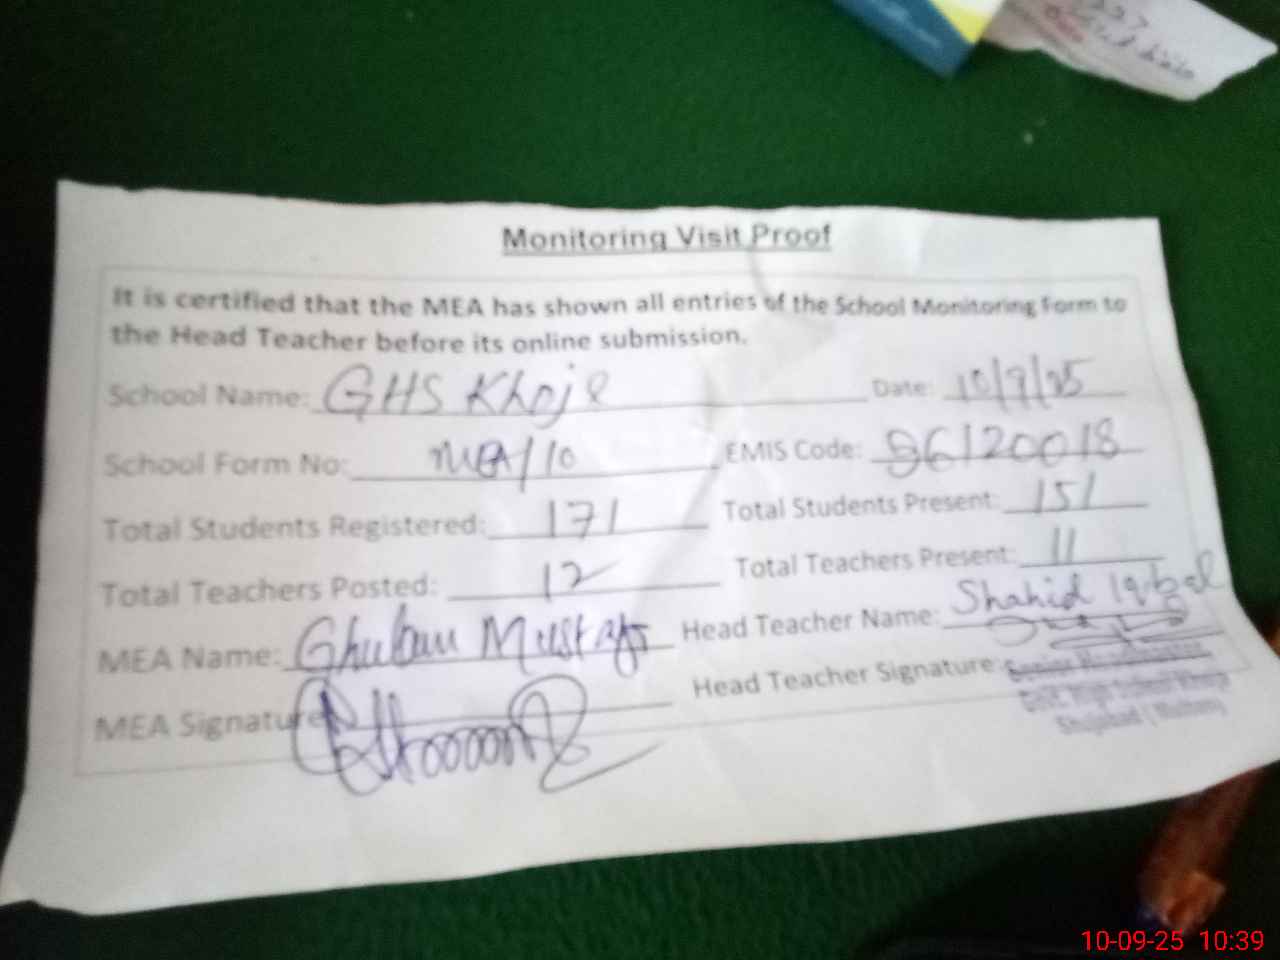 Monitoring Visit Proof
It is certified that the MEA has shown all entries of the School Monitoring Form to
the Head Teacher before its online submission.
School Name: GHS Khoja Date: 10/9/25
School Form No: MEA/10 EMIS Code: 36120018
Total Students Registered: 171 Total Students Present: 151
Total Teachers Posted: 12 Total Teachers Present: 11
MEA Name: Ghulam Mustafa Head Teacher Name: Shahid Iqbal
MEA Signature Head Teacher Signature:
Senior Headmaster
Govt. High School Khoja
Shujabad (Multan)
10-09-25 10:39